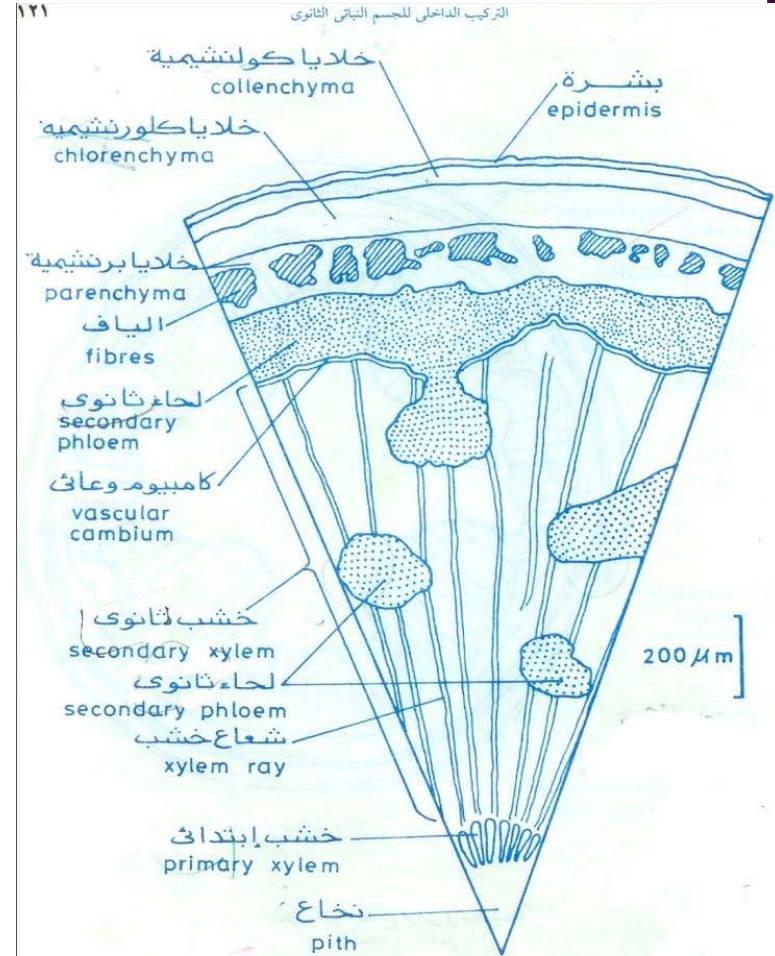 ١٢١
التركيب الداخلى للجسم النباتى الثانوى
خلايا كولنشيمية
collenchyma
بشرة
epidermis
خلايا كلورنشيمية
chlorenchyma
خلايا برنشيمية
parenchyma
الياف
fibres
لحاء ثانوى
secondary
phloem
كامبيوم وعائى
vascular
cambium
خشب ثانوى
secondary xylem
200 μm
لحاء ثانوى
secondary phloem
شعاع خشب
xylem ray
خشب إبتدائى
primary xylem
نخاع
pith